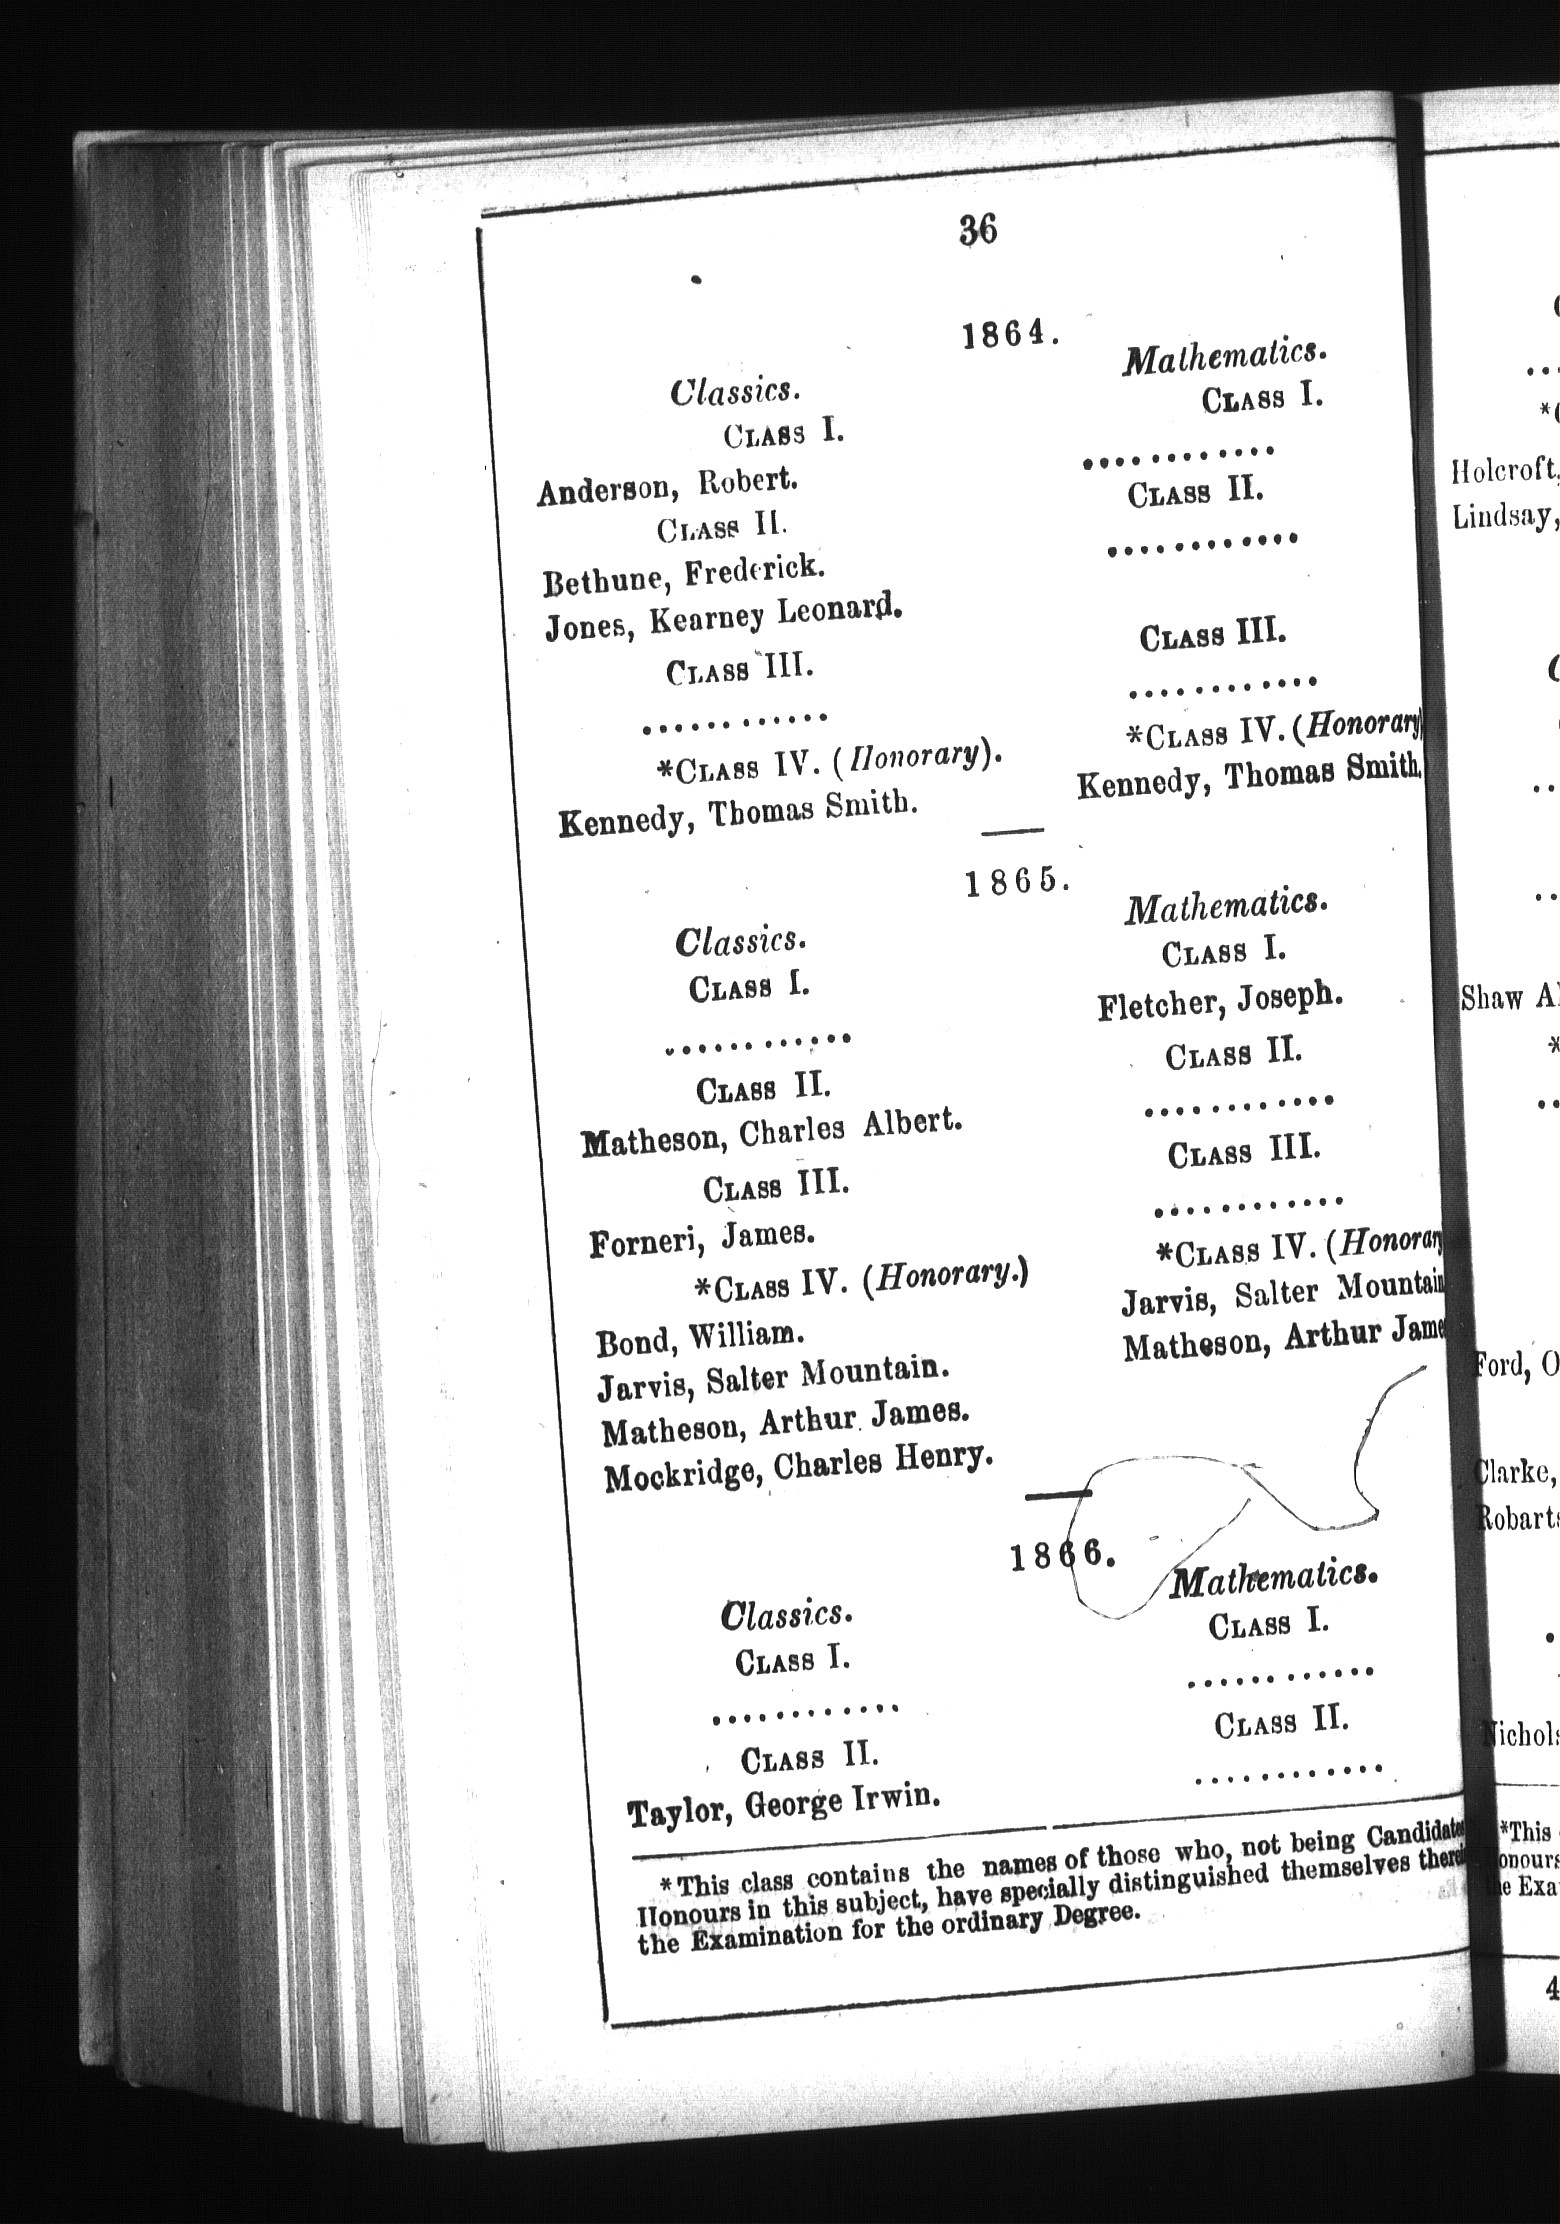 36
1864.
Classics.
CLASS I.
Anderson, Robert.
CLASS II.
Bethune, Frederick.
Jones, Kearney Leonard.
CLASS III.
............
*CLASS IV. (Honorary).
Kennedy, Thomas Smith.
Mathematics.
CLASS I.
............
CLASS II.
............
CLASS III.
............
*CLASS IV. (Honorary
Kennedy, Thomas Smith.
1865.
Classics.
CLASS I.
............
CLASS II.
Matheson, Charles Albert.
CLASS III.
Forneri, James.
*CLASS IV. (Honorary.)
Bond, William.
Jarvis, Salter Mountain.
Matheson, Arthur James.
Mockridge, Charles Henry.
Mathematics.
CLASS I.
Fletcher, Joseph.
CLASS II.
............
CLASS III.
............
*CLASS IV. (Honorar
Jarvis, Salter Mountain
Matheson, Arthur Jame
1866.
Classics.
CLASS I.
............
CLASS II.
Taylor, George Irwin.
Mathematics.
CLASS I.
............
CLASS II.
............
*This class contains the names of those who, not being Candidates
Honours in this subject, have specially distinguished themselves
the Examination for the ordinary Degree.
Holcroft,
Lindsay,
Shaw
*
Ford, O
Clarke,
Robarts
Nichols
*This
onours
the Exa
4